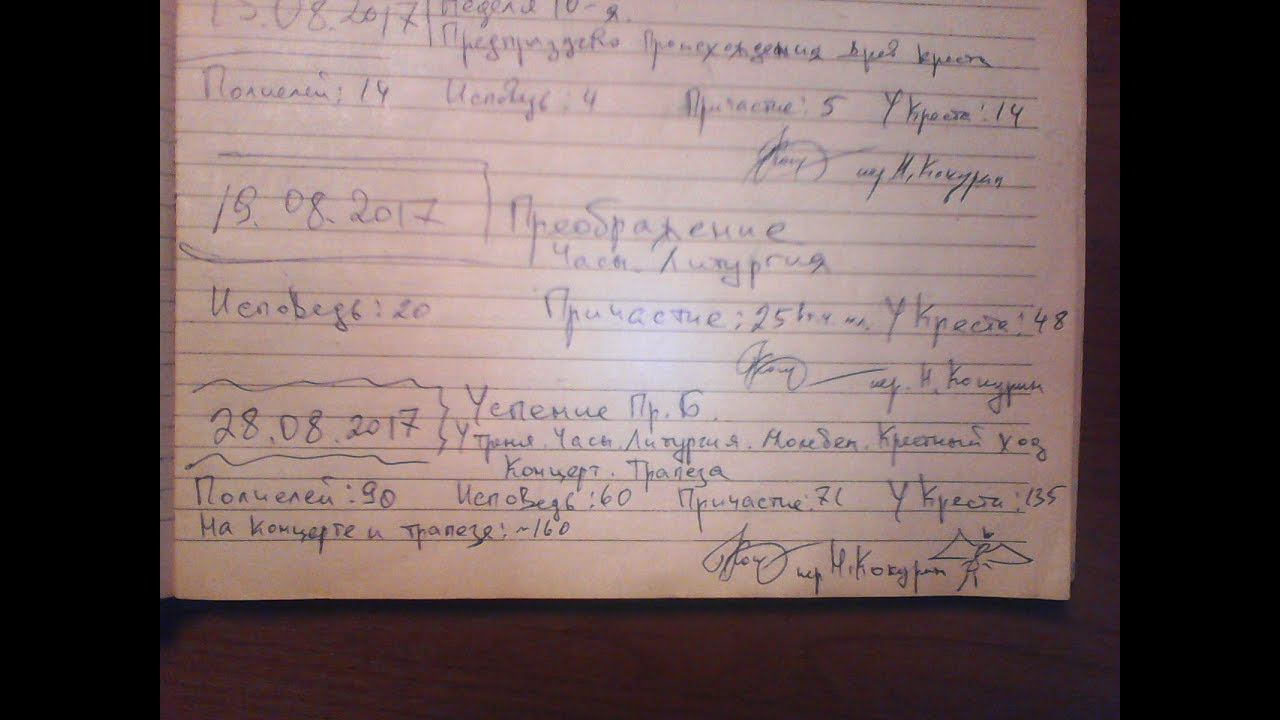 13.08.2017 Неделя 10-я.
Предпразднство Происхождения Древ Креста
Полиелей: 14 Исповедь: 4 Причастие: 5 У Креста: 14
иер Н. Кокурин
19.08.2017 Преображение
Часы. Литургия
Исповедь: 20 Причастие: 25 У Креста: 48
иер. Н. Кокурин
28.08.2017 Успение Пр. Б.
Утреня. Часы. Литургия. Молебен. Крестный ход
Концерт. Трапеза
Полиелей: 90 Исповедь: 60 Причастие: 71 У Креста: 135
На концерте и трапезе: ~160
иер Н. Кокурин